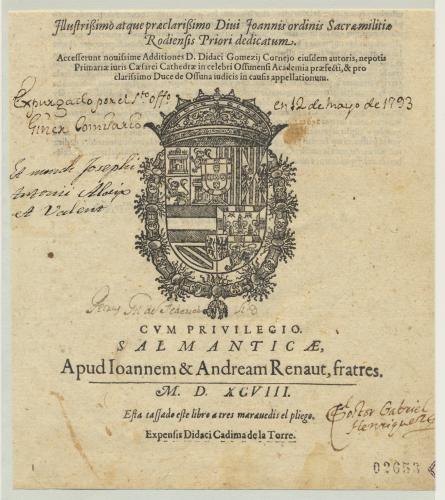 Illustrißimo atque præclarißimo Diui Ioannis ordinis Sacræ militiæ
Rodiensis Priori dedicatum.
Accesserunt nouissime Additiones D. Didaci Gomezij Cornejo eiusdem autoris, nepotis
Primariæ iuris Cæsarei Cathedræ in celebri Ossunensi Academia præfecti, & pro
clarissimo Duce de Ossuna iudicis in causis appellationum.
Expurgado por el Sto offo en 12 de Mayo de 1793
Giner Comisario
Josephi
Antonii
et Valent
CVM PRIVILEGIO.
SALMANTICÆ,
Apud Ioannem & Andream Renaut, fratres.
M. D. XCVIII.
Esta tassado este libro a tres marauedis el pliego.
Expensis Didaci Cadima de la Torre.
Doctor Gabriel
Henriquez
02653